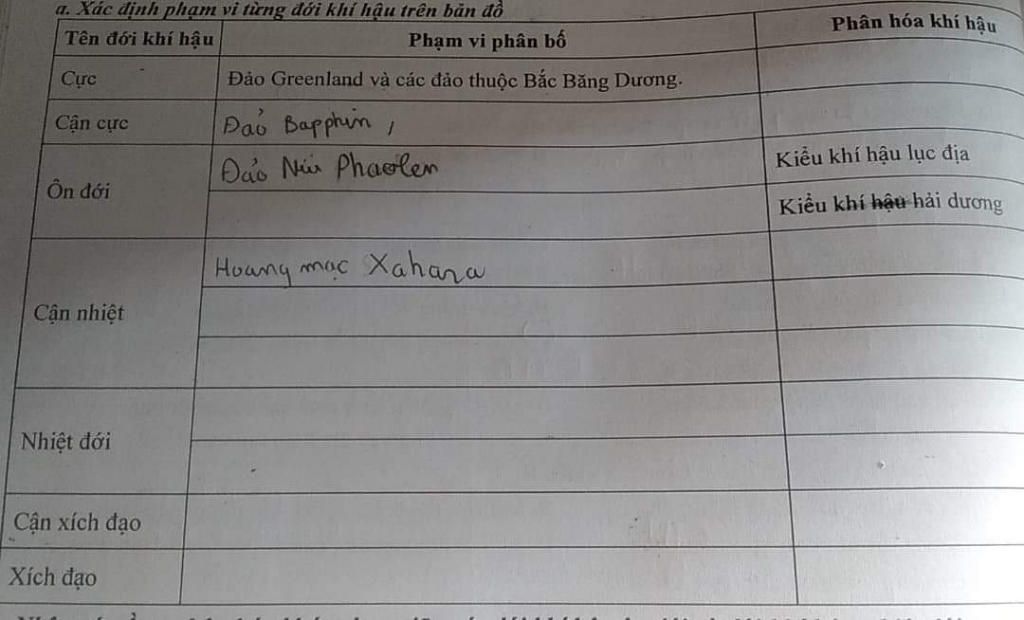 a. Xác định phạm vi từng đới khí hậu trên bản đồ
Tên đới khí hậu Phạm vi phân bố Phân hóa khí hậu
Cực Đảo Greenland và các đảo thuộc Bắc Băng Dương.
Cận cực Đảo Bapphin,
Ôn đới Đảo Niu Phaolen Kiểu khí hậu lục địa
Kiểu khí hậu hải dương
Cận nhiệt Hoang mạc Xahara
Nhiệt đới
Cận xích đạo
Xích đạo